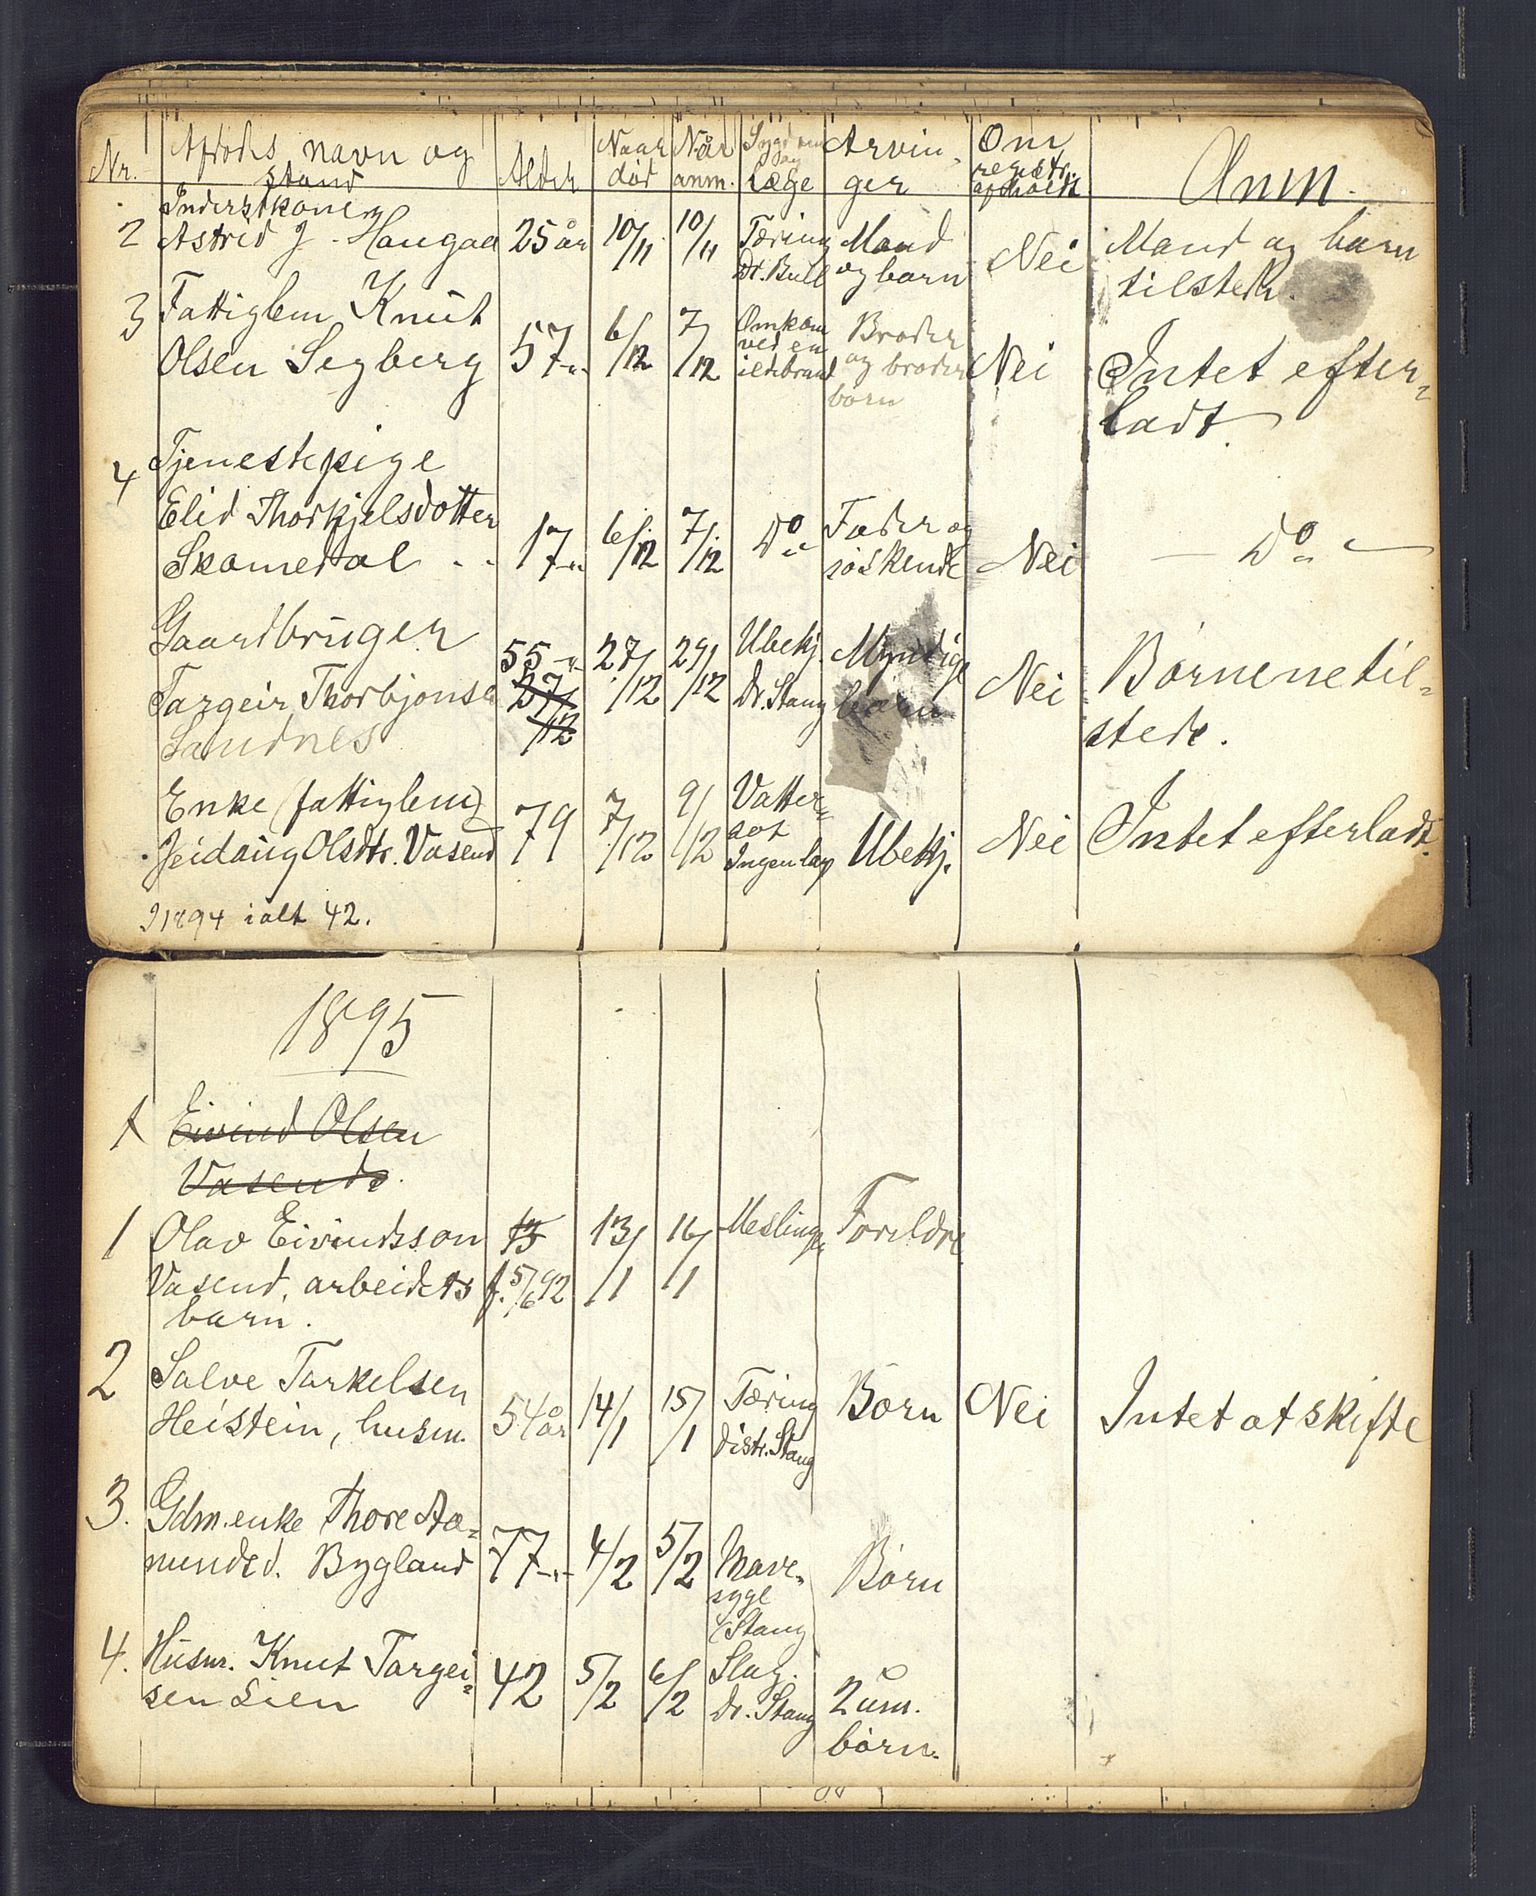 Nr. Afdødes navn og stand Alder Naar død Når anm. Sygdom og læge Arvinger Om registr. afholdt Anm.
Inderstkone
2 Astrid J. Haugaa 25 år 10/11 10/11 Tæring Dr. Bull Mand og barn Nei Mand og barn tilstede.
3 Fattiglem Knut
Olsen Segberg 57-"- 6/12 7/12 Omkom ved en ildebrand Broder og broderbørn Nei Intet efterladt.
4 Tjenestepige
Elid Thorkjelsdotter
Skomedal 17-"- 6/12 7/12 Do Fader og søskende Nei Do
Gaardbruger
Targeir Thorbjønsen
Sandnes 55-"- 27/12 27/12 29/12 Ubekj. Dr. Stang Myndige børn Nei Børnene tilstede.
Enke (fattiglem)
Jeidaug Olsdtr. Vasend 79 7/12 9/12 Vattersot Ingen læge Ubekj. Nei Intet efterladt.
I 1894 ialt 42.
1895
1 Eivind Olsen
Vasende.
1 Olav Eivindsson 13 13/1 16/1 Meslinger Forældre
Vasend, arbeiders f. 5/6 92
barn.
2 Salve Tarkelsen
Heistein, husm. 54 år 14/1 15/1 Tæring distr. Stang Børn Nei Intet at skifte
3. Gdm.enke Thore Aa=
mundsd. Bygland 77-"- 4/2 5/2 Mavesyge (Stang Børn
4. Husm. Knut Targei=
sen Lien 42 5/2 6/2 Slag. Dr. Stang 2 um. børn.